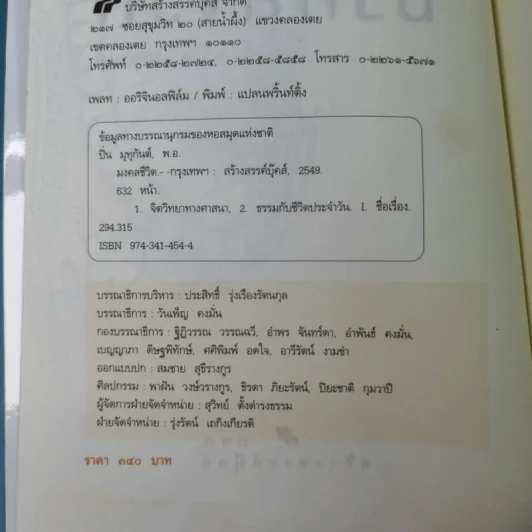 บริษัทสร้างสรรค์บุ๊คส์ จำกัด
๒๑๗ ซอยสุขุมวิท ๒๐ (สายน้ำผึ้ง) แขวงคลองเตย
เขตคลองเตย กรุงเทพฯ ๑๐๑๑๐
โทรศัพท์ ๐-๒๒๕๘-๒๗๒๔, ๐-๒๒๕๘-๕๘๕๘ โทรสาร ๐-๒๒๖๑-๕๖๗๑
เพลท : ออริจินอลฟิล์ม / พิมพ์ : แปลนพริ้นท์ติ้ง
ข้อมูลทางบรรณานุกรมของหอสมุดแห่งชาติ
ปิ่น มุทุกันต์, พ.อ.
มงคลชีวิต.- -กรุงเทพฯ : สร้างสรรค์บุ๊คส์, 2549.
632 หน้า.
1. จิตวิทยาทางศาสนา, 2. ธรรมกับชีวิตประจำวัน. I. ชื่อเรื่อง.
294.315
ISBN 974-341-454-4
บรรณาธิการบริหาร : ประสิทธิ์ รุ่งเรืองรัตนกุล
บรรณาธิการ : วันเพ็ญ คงมั่น
กองบรรณาธิการ : ฐิฏิวรรณ วรรณฉวี, อำพร จันทร์ดา, อำพันธ์ คงมั่น,
เบญญาภา ดิษฐพิทักษ์, ศศิพิมพ์ อดใจ, อารีรัตน์ งามขำ
ออกแบบปก : สมชาย สุธีรางกูร
ศิลปกรรม : พาฝัน วงษ์วรางกูร, ธิรดา ภิยะรัตน์, ปิยะชาติ กุมวาปี
ผู้จัดการฝ่ายจัดจำหน่าย : สุวิทย์ ตั้งดำรงธรรม
ฝ่ายจัดจำหน่าย : รุ่งรัตน์ เถกิงเกียรติ
ราคา ๓๔๐ บาท